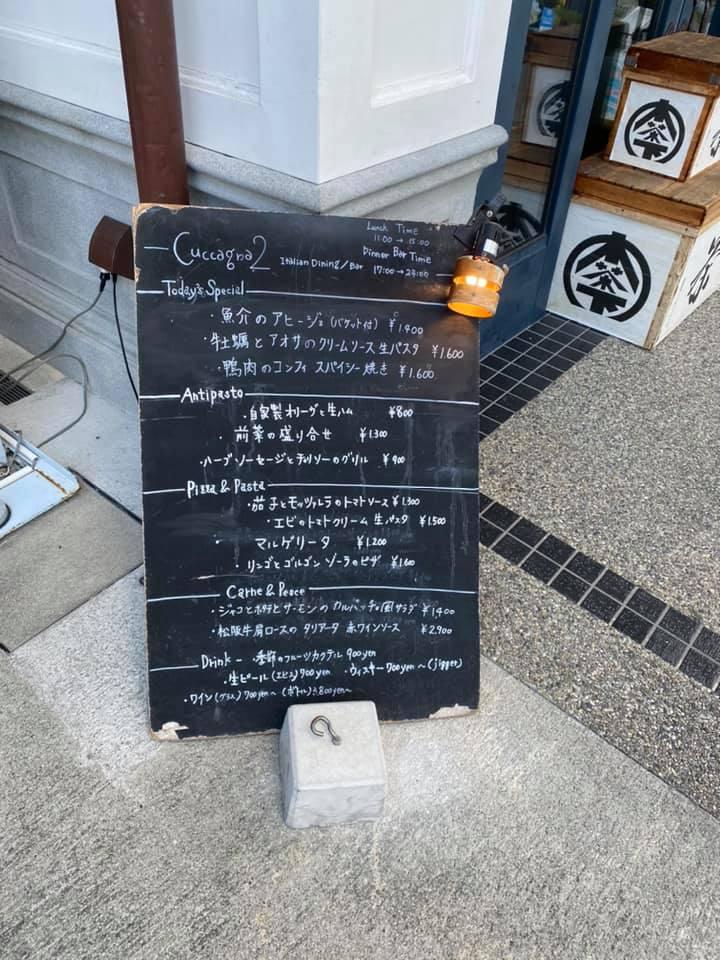 Cuccagna2
Italian Dining/Bar
Lunch Time
11:00 → 15:00
Dinner Bar Time
17:00 → 23:00
Today's Special
・魚介のアヒージョ (バケット付) ¥1.400
・牡蠣とアオサのクリームソース生パスタ ¥1.600
・鴨肉のコンフィ スパイシー焼き ¥1.600
Antipasto
・自家製オリーブと生ハム ¥800
・前菜の盛り合せ ¥1.300
・ハーブソーセージとチョリソーのグリル ¥900
Pizza & Pasta
・茄子とモッツァレラのトマトソース ¥1.300
・エビのトマトクリーム 生パスタ ¥1.500
・マルゲリータ ¥1.200
・リンゴとゴルゴンゾーラのピザ ¥1.600
Carne & Pesce
・ジャコとポテトとサーモンのカルパッチョ風サラダ ¥1,400
・松阪牛肩ロースのタリアータ 赤ワインソース ¥2.900
Drink - ・季節のフルーツカクテル 900yen
・生ビール (エビス) 700yen ・ウィスキー 700yen 〜 (jigger)
・ワイン (グラス) 700yen〜 (ボトル)
茶
茶